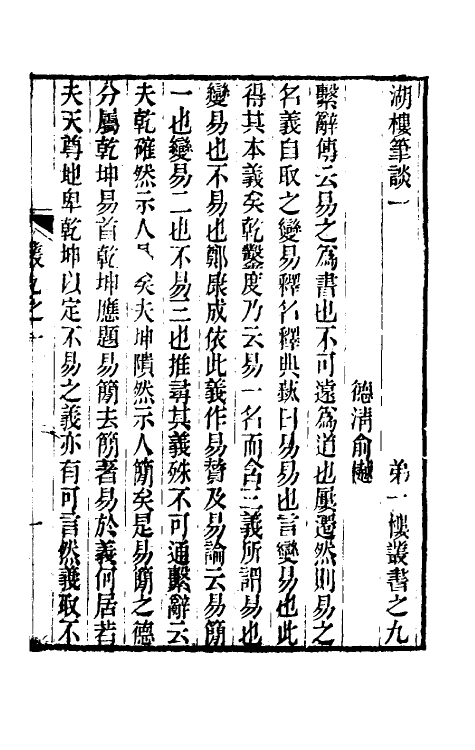 湖樓筆談一　弟一樓叢書之九
德清俞樾
繫辭傳云易之爲書也不可遠爲道也屢遷然則易之
名義自取之變易釋名釋典蓺曰易易也言變易也此
得其本義矣乾鑿度乃云易一名而含三義所謂易也
變易也不易也鄭康成依此義作易贊及易論云易簡
一也變易二也不易三也推尋其義殊不可通繫辭云
夫乾確然示人易矣夫坤隤然示人簡矣是易簡之德
分屬乾坤易首乾坤應題易簡去簡著易於義何居若
夫天尊地卑乾坤以定不易之義亦有可言然義取不
叢九之一
一